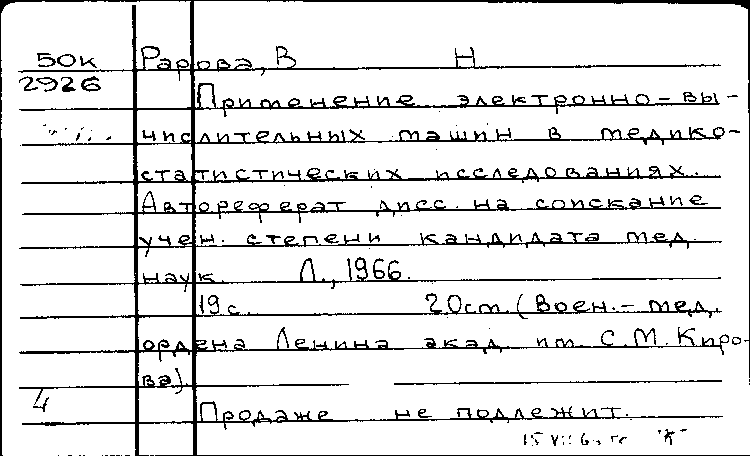 50к Рарова, В Н
2926
Применение электронно-вы-
числительных машин в медико-
статистических исследованиях.
Автореферат дисс. на соискание
учен. степени кандидата мед.
наук. Л., 1966.
19с. 20см. (Воен.-мед.
ордена Ленина акад. им. С.М.Киро-
ва).
4
Продаже не подлежит.